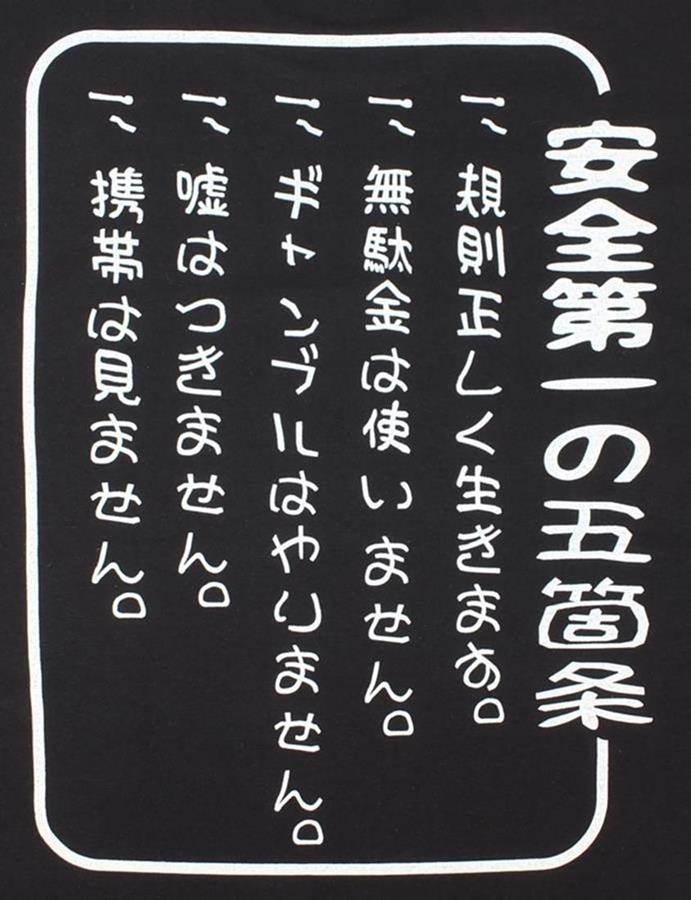 安全第一の五箇条
一、規則正しく生きます。
一、無駄金は使いません。
一、ギャンブルはやりません。
一、嘘はつきません。
一、携帯は見ません。